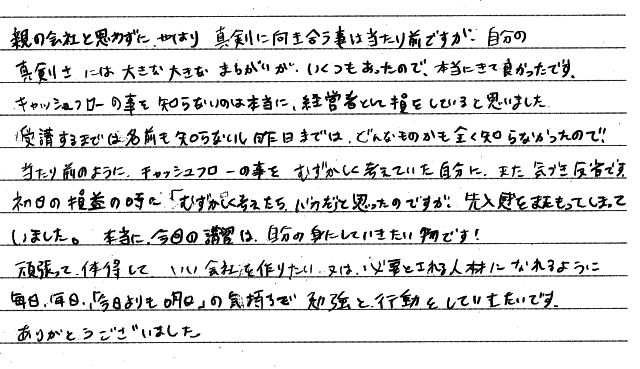 親の会社と思わずに、やはり 真剣に向き合う事は当たり前ですが、自分の
真剣さ には 大きな大きな まちがいが、いくつもあったので、本当にきて良かったです。
キャッシュフローの事を 知らないのは本当に、経営者として損をしていると思いました
受講するまでは名前も知らないし 昨日までは、どんなものかも全く知らなかったので、
当たり前のように、キャッシュフローの事を むずかしく考えていた自分に、また 気づき反省です
初日の損益の時に「むずかしく考えたら、いかんぞと思ったのですが、先入感をまたもってしまって
いました。 本当に、今回の講習は、自分の身にしていきたい物です!
頑張って、体得して いい会社を作りたい、又は、必要とされる人材になれるように
毎日、毎日、「今日よりも明日」の気持ちで 勉強と、行動をしていきたいです。
ありがとうございました